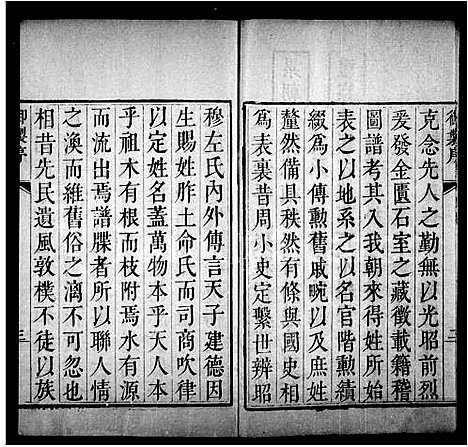 御製序
克念先人之勤無以光昭前烈
爰發金匱石室之藏徵載籍稽
圖譜考其入我朝來得姓所始
表之以地系之以名官階勲績
綴爲小傳勲舊戚畹以及庶姓
釐然備具秩然有條與國史相
爲表裏昔周小史定繫世辨昭
二
穆左氏內外傳言天子建德因
生賜姓胙土命氏而司商吹律
以定姓名蓋萬物本乎天人本
乎祖木有根而枝附焉水有源
而流出焉譜牒者所以聯人情
之渙而維舊俗之漓不可忘
相昔先民遺風敦樸不徒以族
御製序
三